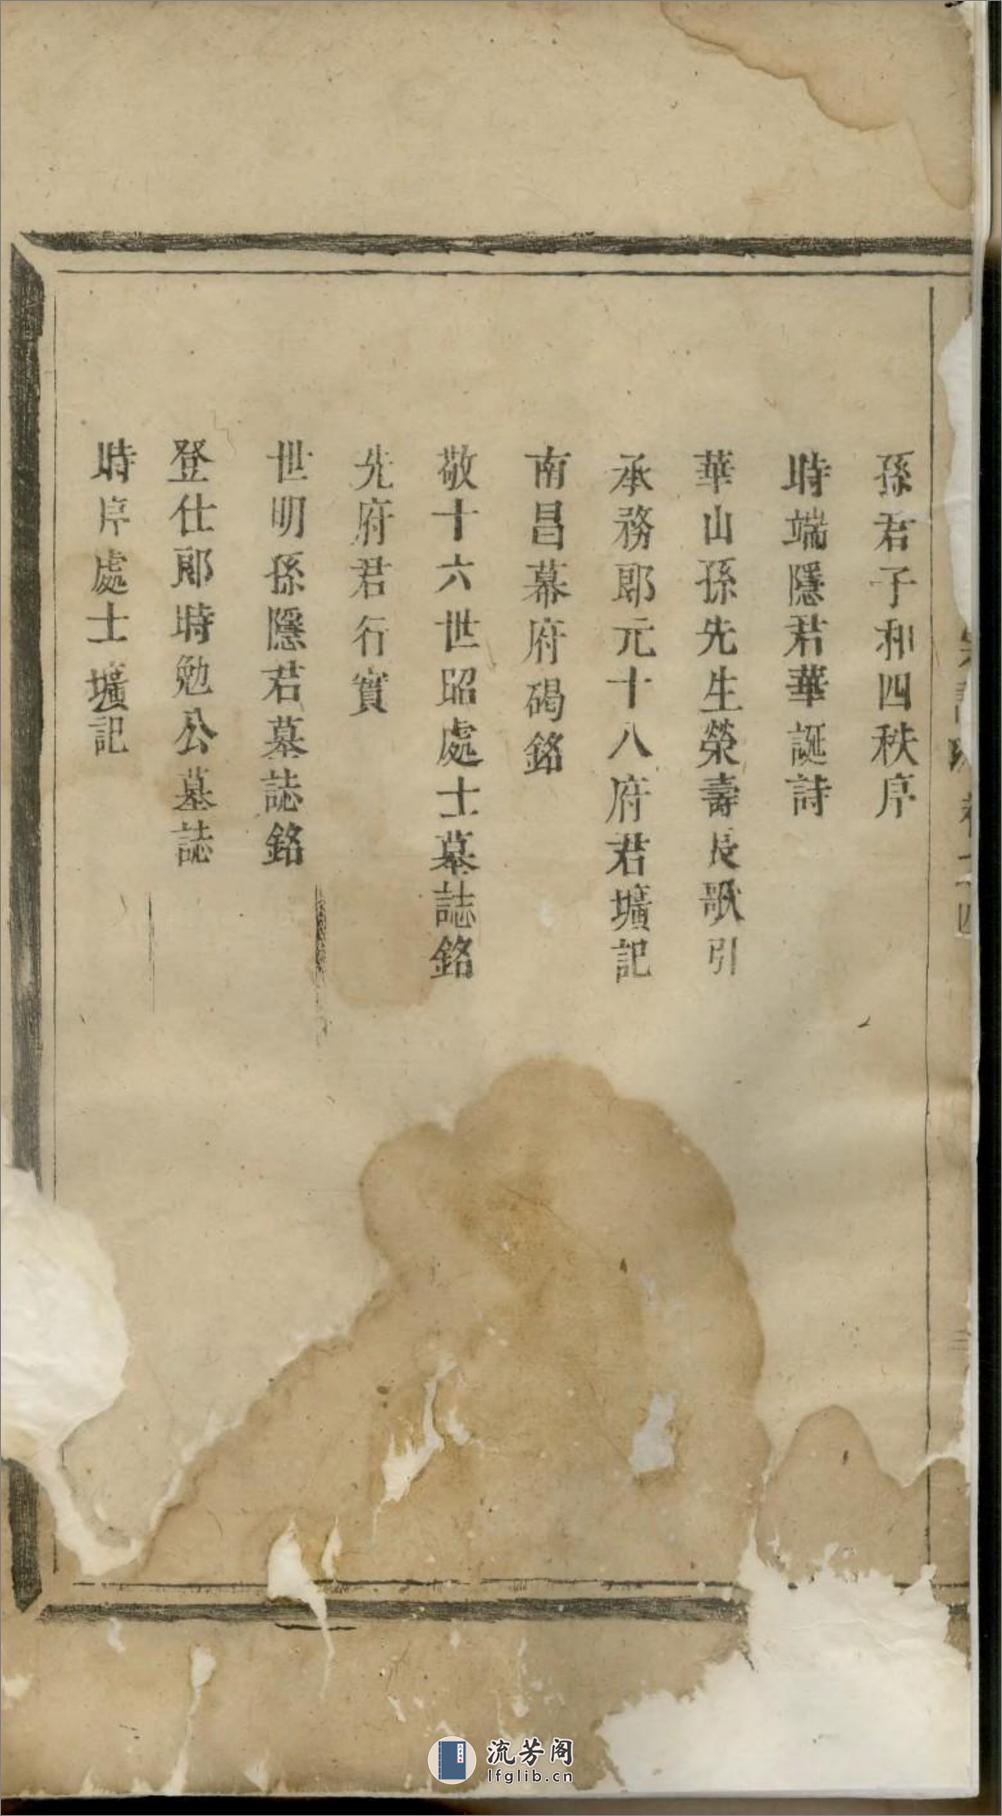 孫君子和四秩序
時端隱君華誕詩
華山孫先生榮壽長歌引
承務郎元十八府君壙記
南昌幕府碣銘
敬十六世昭處士墓誌銘
先府君行實
世明孫隱君墓誌銘
登仕郎時勉公墓誌
時序處士壙記
流芳阁
lfglib.cn